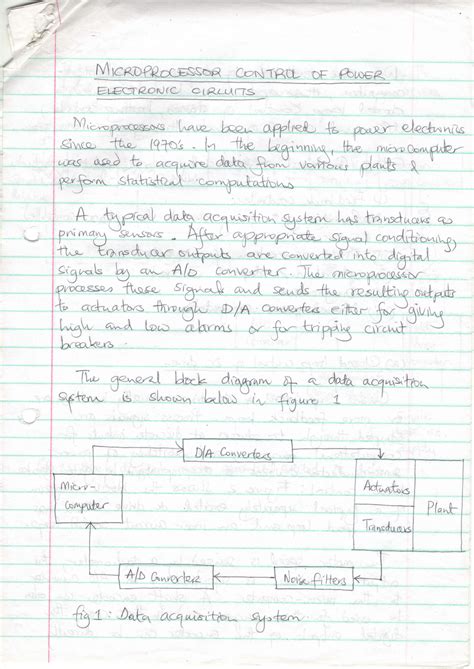 MICROPROCESSOR CONTROL OF POWER
ELECTRONIC CIRCUITS
Microprocessors have been applied to power electronics
since the 1970's. In the beginning, the microcomputer
was used to acquire data from various plants &
perform statistical computations
A typical data acquisition system has transducers as
primary sensors. After appropriate signal conditioning,
the transducer outputs are converted into digital
signals by an A/D converter. The microprocessor
processes these signals and sends the resulting outputs
to actuators through D/A converters either for giving
high and low alarms or for tripping circuit
breakers.
The general block diagram of a data acquisition
system is shown below in figure 1
D/A Converters
Micro-
Computer
Actuators
Plant
Transducers
A/D Converter
Noise filters
fig 1: Data acquisition system